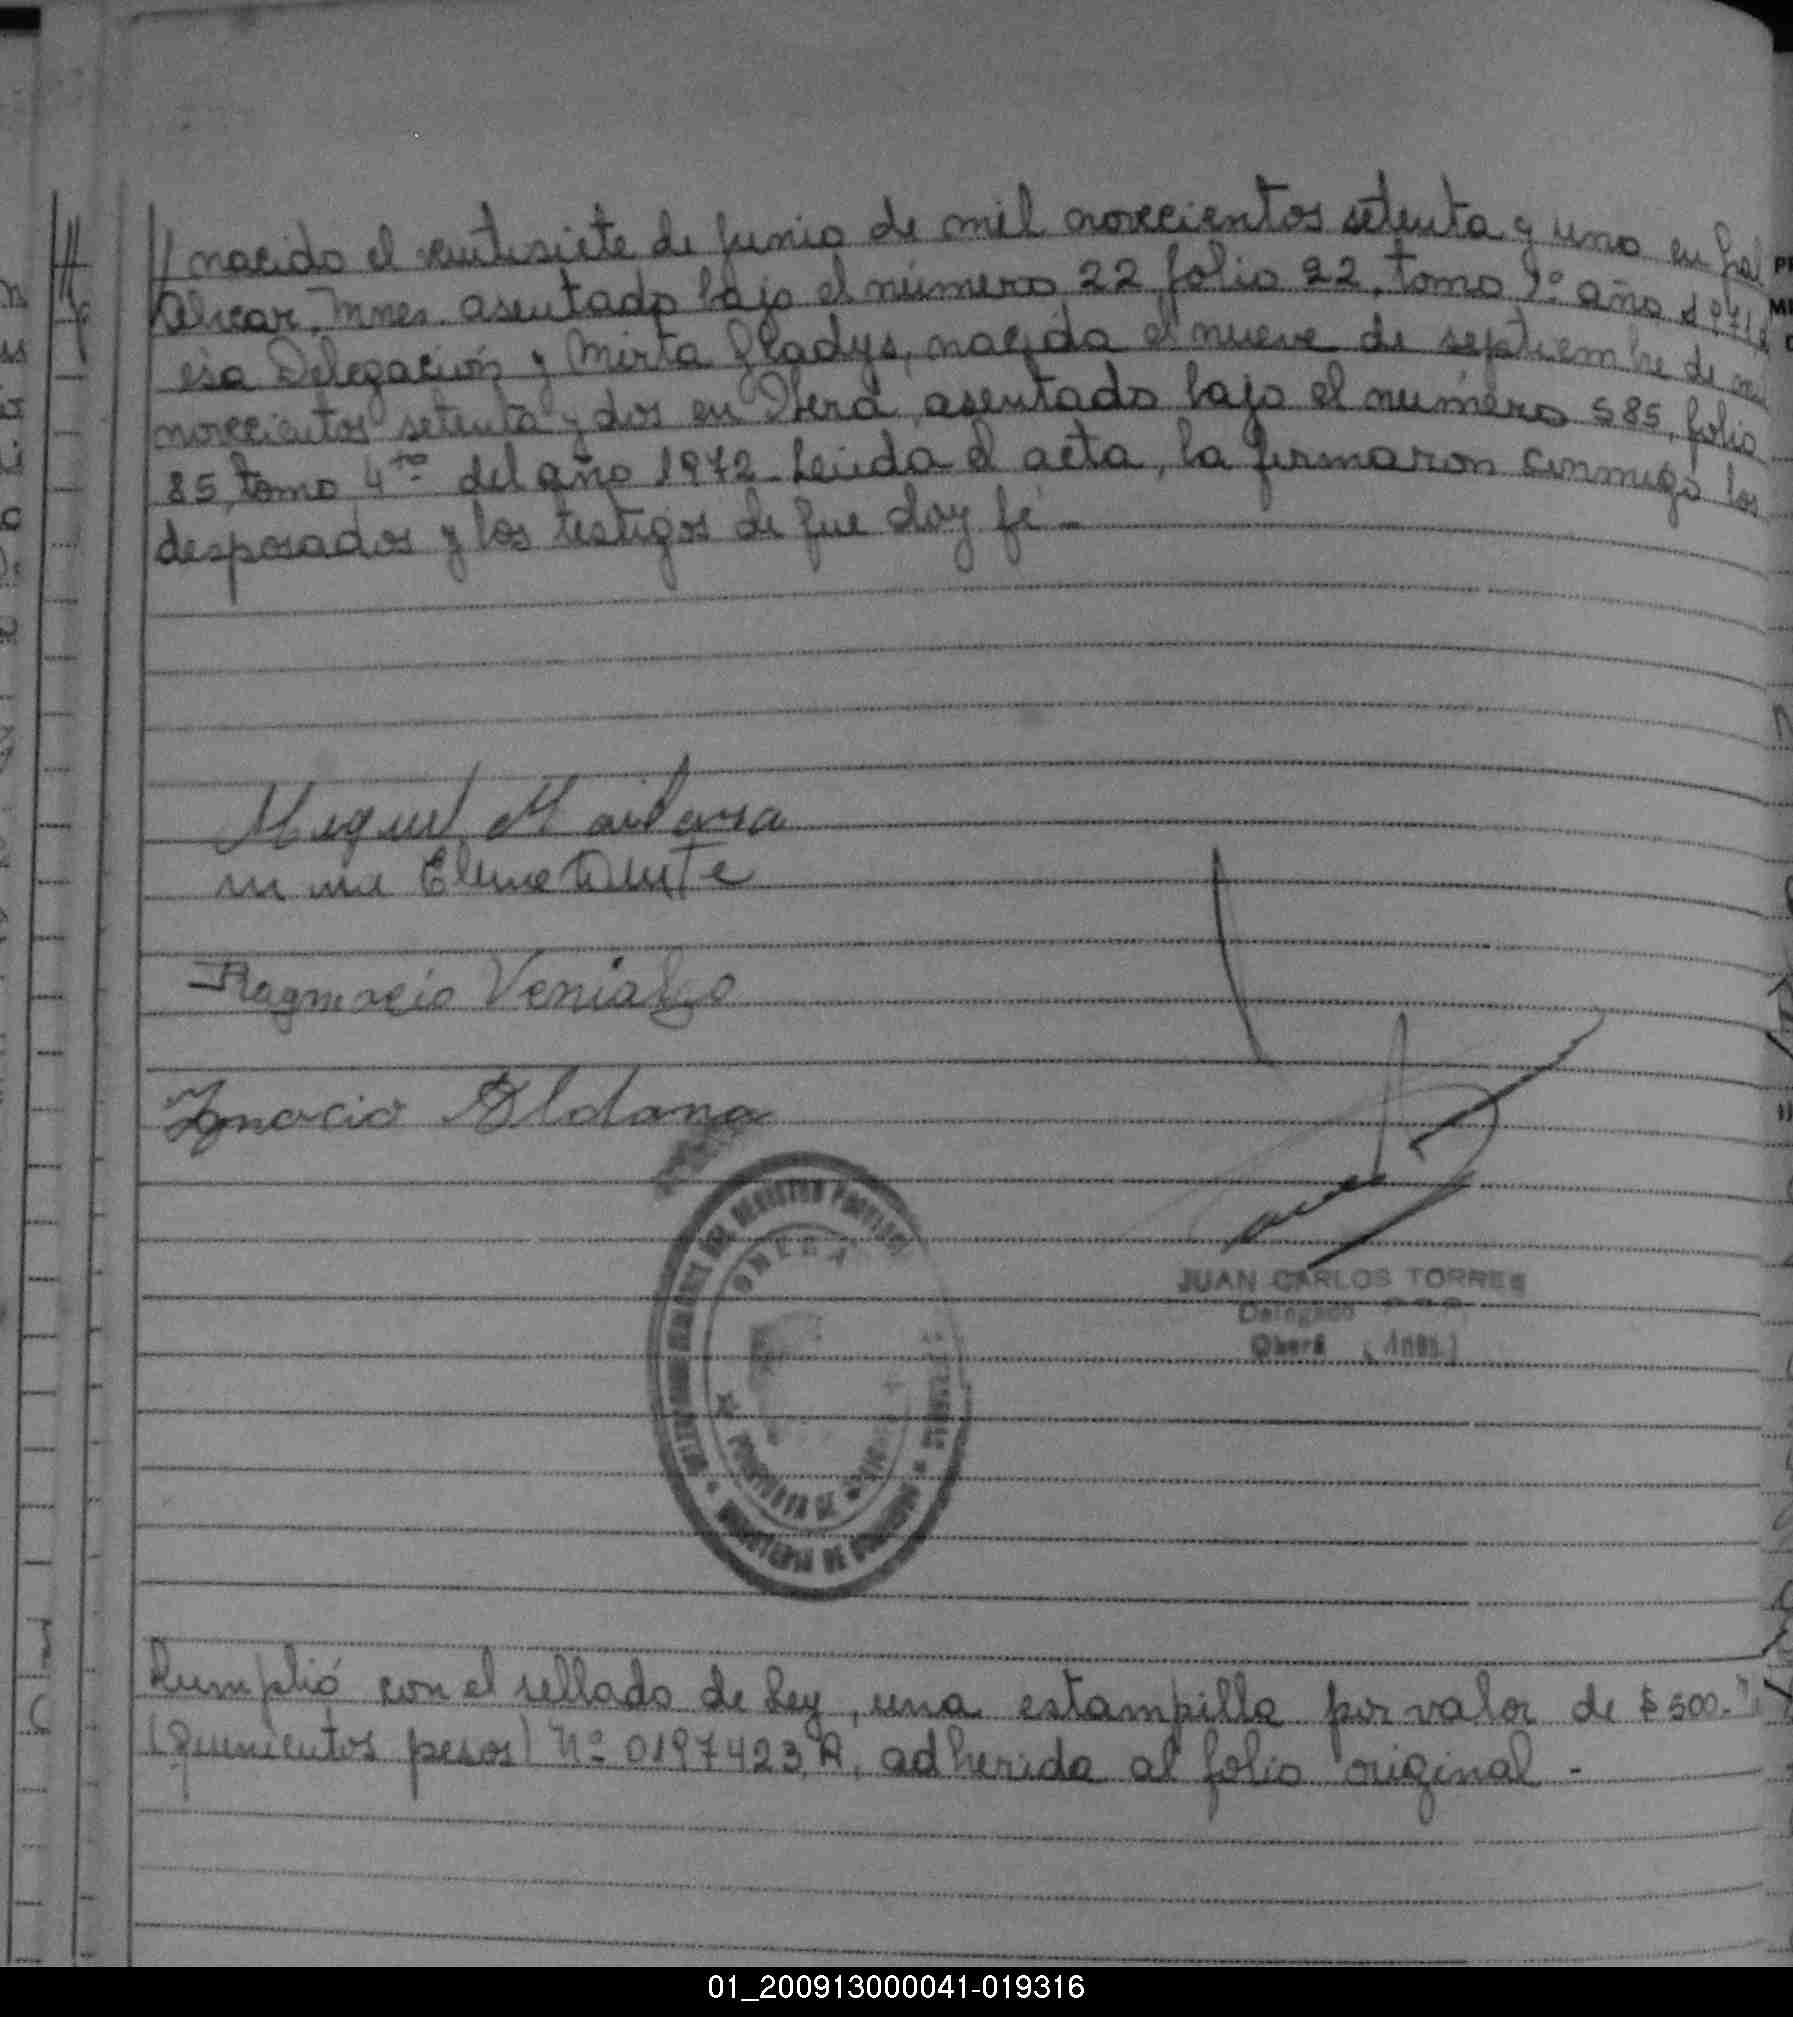 // nacido el veintisiete de junio de mil novecientos setenta y uno en Gral
Alvear, Mnes. asentado bajo el número 22, folio 22, tomo 1º año 1971 d
esa Delegación y Mirta Gladys, nacida el nueve de septiembre de mil
novecientos setenta y dos en Oberá, asentada bajo el número 585, folio
85, tomo 4to del año 1972. Leída el acta, la firmaron conmigo los
desposados y los testigos de que doy fé.-
Miguel
Elena
Venialgo
Ignacio Aldana
OBERA
PROVINCIA DE MISIONES
JUAN CARLOS TORRES
Delegado
Oberá (Mnes.)
Cumplió con el sellado de Ley, una estampilla por valor de $ 500.-
(Quinientos pesos) Nº 0197423 A, adherida al folio original.-
01_200913000041-019316